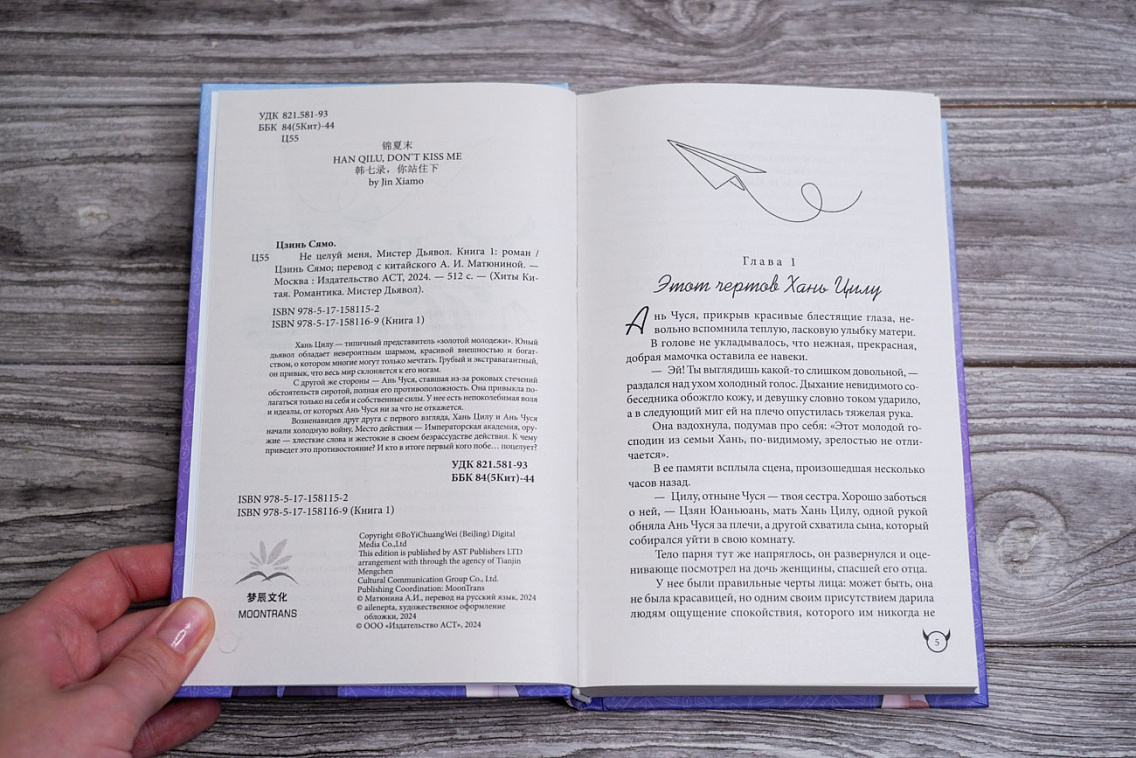 УДК 821.581-93
ББК 84(5Кит)-44
Ц55
锦夏末
HAN QILU, DON'T KISS ME
韩七录，你站住下
by Jin Xiamo
Цзинь Сямо.
Ц55 Не целуй меня, Мистер Дьявол. Книга 1: роман /
Цзинь Сямо; перевод с китайского А. И. Матюниной. —
Москва : Издательство АСТ, 2024. — 512 с. — (Хиты Ки-
тая. Романтика. Мистер Дьявол).
ISBN 978-5-17-158115-2
ISBN 978-5-17-158116-9 (Книга 1)
Хань Цилу — типичный представитель «золотой молодежи». Юный
дьявол обладает невероятным шармом, красивой внешностью и богат-
ством, о котором многие могут только мечтать. Грубый и экстравагантный,
он привык, что весь мир склоняется к его ногам.
С другой же стороны — Ань Чуся, ставшая из-за роковых стечений
обстоятельств сиротой, полная его противоположность. Она привыкла по-
лагаться только на себя и собственные силы. У нее есть непоколебимая воля
и идеалы, от которых Ань Чуся ни за что не откажется.
Возненавидев друг друга с первого взгляда, Хань Цилу и Ань Чуся
начали холодную войну. Место действия — Императорская академия, ору-
жие — хлесткие слова и жестокие в своем безрассудстве действия. К чему
приведет это противостояние? И кто в итоге первый кого побе… поцелует?
УДК 821.581-93
ББК 84(5Кит)-44
ISBN 978-5-17-158115-2
ISBN 978-5-17-158116-9 (Книга 1)
梦辰文化
MOONTRANS
Copyright ©BoYiChuangWei (BeiJing) Digital
Media Co.,Ltd
This edition is published by AST Publishers LTD
arrangement with through the agency of Tianjin
Mengchen
Cultural Communication Group Co., Ltd.
Publishing Coordination: MoonTrans
© Матюнина А.И., перевод на русский язык, 2024
© ailenepta, художественное оформление
обложки, 2024
© ООО «Издательство АСТ», 2024
Глава 1
Этот чертов Хань Цилу
Ань Чуся, прикрыв красивые блестящие глаза, не-
вольно вспомнила теплую, ласковую улыбку матери.
В голове не укладывалось, что нежная, прекрасная,
добрая мамочка оставила ее навеки.
— Эй! Ты выглядишь какой-то слишком довольной, —
раздался над ухом холодный голос. Дыхание невидимого со-
беседника обожгло кожу, и девушку словно током ударило,
а в следующий миг ей на плечо опустилась тяжелая рука.
Она вздохнула, подумав про себя: «Этот молодой го-
сподин из семьи Хань, по-видимому, зрелостью не отли-
чается».
В ее памяти всплыла сцена, произошедшая несколько
часов назад.
— Цилу, отныне Чуся — твоя сестра. Хорошо заботься
о ней, — Цзян Юаньюань, мать Хань Цилу, одной рукой
обняла Ань Чуся за плечи, а другой схватила сына, который
собирался уйти в свою комнату.
Тело парня тут же напряглось, он развернулся и оце-
нивающе посмотрел на дочь женщины, спасшей его отца.
У нее были правильные черты лица: может быть, она
не была красавицей, но одним своим присутствием дарила
людям ощущение спокойствия, которого им никогда не
5